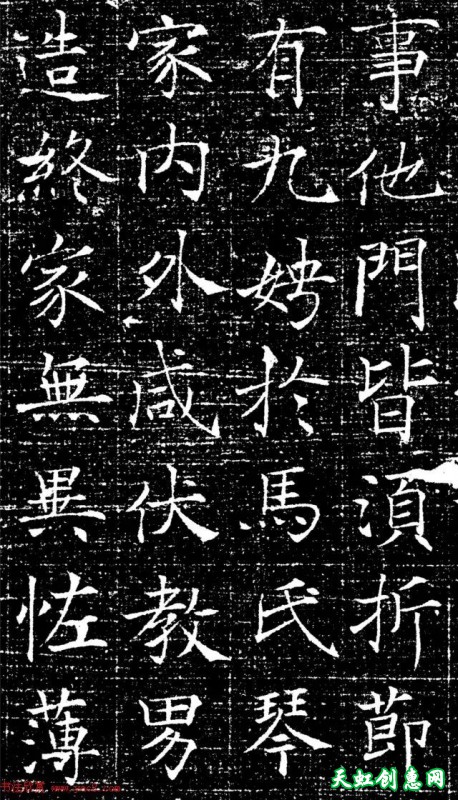 事他門皆湏折莭
有九娉於馬氏琴
家内外咸伏教男
造終家無異恠薄
天虹创惠网